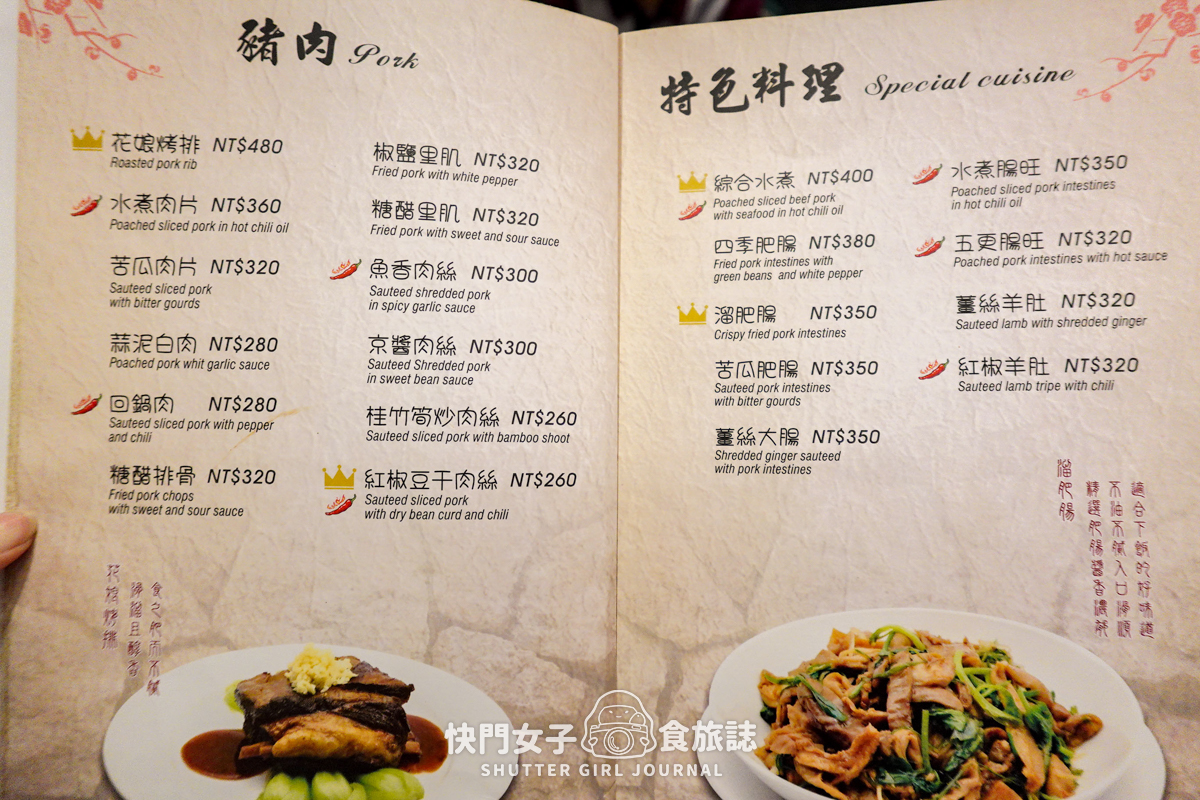 豬肉 Pork
花娘烤排 NT$480
Roasted pork rib
水煮肉片 NT$360
Poached sliced pork in hot chili oil
苦瓜肉片 NT$320
Sauteed sliced pork
with bitter gourds
蒜泥白肉 NT$280
Poached pork whit garlic sauce
回鍋肉 NT$280
Sauteed sliced pork with pepper
and chili
糖醋排骨 NT$320
Fried pork chops
with sweet and sour sauce
椒鹽里肌 NT$320
Fried pork with white pepper
糖醋里肌 NT$320
Fried pork with sweet and sour sauce
魚香肉絲 NT$300
Sauteed shredded pork
in spicy garlic sauce
京醬肉絲 NT$300
Sauteed Shredded pork
in sweet bean sauce
桂竹筍炒肉絲 NT$260
Sauteed sliced pork with bamboo shoot
紅椒豆干肉絲 NT$260
Sauteed sliced pork
with dry bean curd and chili
花娘烤排
滑溜且酸香
食之肥而不膩
特色料理 Special cuisine
綜合水煮 NT$400
Poached sliced beef pork
with seafood in hot chili oil
四季肥腸 NT$380
Fried pork intestines with
green beans and white pepper
溜肥腸 NT$350
Crispy fried pork intestines
苦瓜肥腸 NT$350
Sauteed pork intestines
with bitter gourds
薑絲大腸 NT$350
Shredded ginger sauteed
with pork intestines
水煮腸旺 NT$350
Poached sliced pork intestines
in hot chili oil
五更腸旺 NT$320
Poached pork intestines with hot sauce
薑絲羊肚 NT$320
Sauteed lamb with shredded ginger
紅椒羊肚 NT$320
Sauteed lamb tripe with chili
溜肥腸
精選肥腸醬香濃郁
不油不膩入口滑順
適合下飯的好味道
快門女子 食旅誌
SHUTTER GIRL JOURNAL